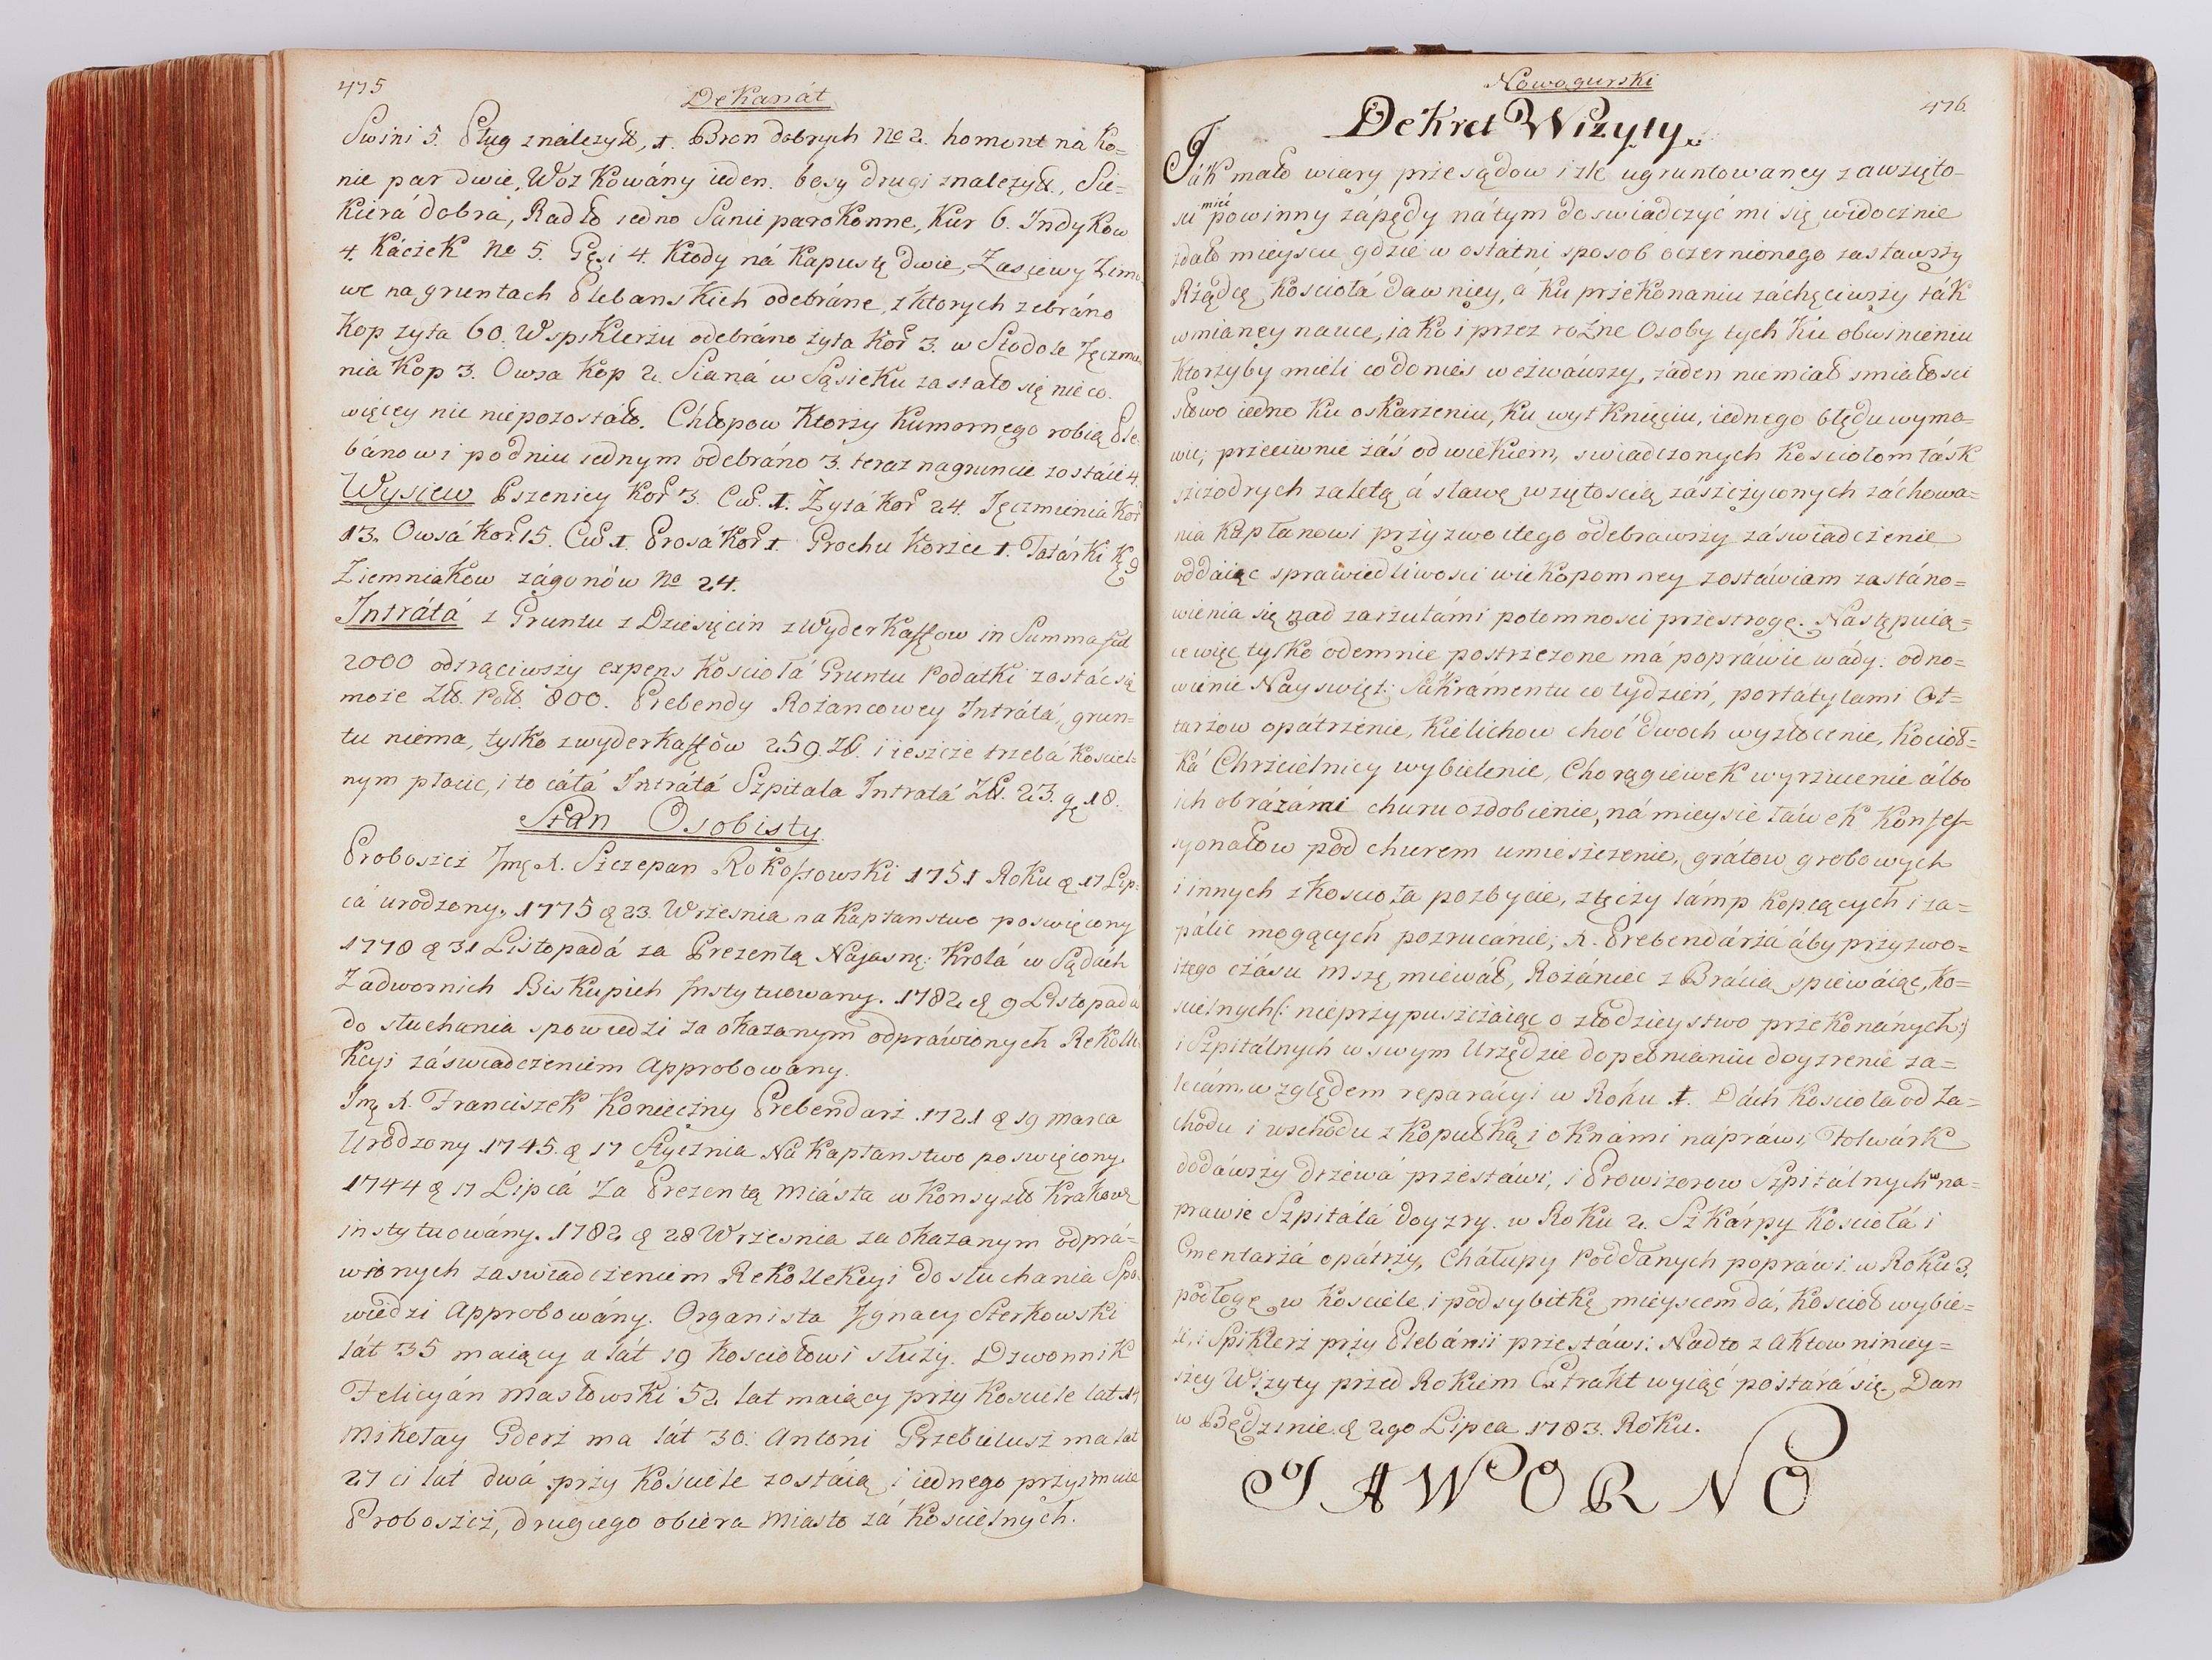 475
Dekanát
Swini 5. Pług z náleżył, 1. Bron dobrych No 2. homont ná Ko=
nie par dwie, Wóz Kowány ieden. bosy drugi z należył., Sie=
Kierá dobra, Radło iedno Sanie parokonne, Kur 6. Indykow
4. Káczek No 5. Gęsi 4. Kłody ná Kapustę dwie, Zasiewy Zimo
we na gruntach Plebanskich odebráne, z ktorych zebráno
Kop zyta 60. W spiklerżu odebráno żyta Kor 3. w Stodole Jęczmie
nia Kop 3. Owsa Kop 2. Sianá w Sąsieku zastało się nieco.
więcey nic niepozostáło. Chłopow Ktorzy Kumornego robią Ple
bánowi po dniu iednym odebráno 3. teraz na gruncie zostáie 4.
Wysiew Pszenicy Kor 3. Cw. 1. Żytá Kor 24. Jęczmienia Kor
13. Owsá Kor. 15. Cw. 1. Prosá Kor 1. Grochu Korzec 1. Tatárki
Ziemniakow zágonów No 24.
Intrátá z Gruntu z Dziesięcin z Wyderkaffow in Summa
2000 odtrąciwszy expens Kosciołá Gruntu Podatki zostác się
może Zł. Pol. 800. Prebendy Rożancowey Intrátá, grun=
tu niema, tylko z wyderkaffów 259. Zł. i ieszcze trzeba Kosciel=
nym płacic, i to cáłá Intrátá Szpitala Intratá Zł. 23. g 18.
Stan Osobisty
Proboszcz Jmę X. Szczepan Rokossowski 1751 Roku d 17 Lip=
cá urodzony. 1775 d 23. Wrzesnia na Kapłanstwo poswięcony
1778 d 31 Listopadá za Prezentą Najasnę: Krolá w Sądách
Zadwornich Biskupich Instytuowany. 1782 d 9 Listopadá
do słuchania spowiedzi za okazanym odpráwionych Rekolle
Kcyi záswiadczeniem Approbowany.
Jmę X. Franciszek Konieczny Prebendarż 1721 d 19 Marca
Urodzony 1745. d 17 Stycznia Na Kapłanstwo poswięcony.
1744 d 17 Lipcá Za Prezentą Miásta w Konsyst Krakows
instytuowány. 1782 d 28 Wrzesnia za okazanym odprá=
wionych zaswiadczeniem Rekollekcyi do słuchania Spo
wiedzi Approbowány. Organista Jgnacy Sterkowski
lát 35 maiący a lát 19 Kosciołowi służy. Dzwonnik
Felicyán Masłowski 52 lat maiący przy Kosciele lat 14
Mikołay Gderż ma lát 30. Antoni Grzebielusz ma lat
27 ci lát dwá przy Kościele zostáią i iednego przyimuie
Proboszcz, drugiego obiera Miasto zá Kościelnych.
Nowogurski
476.
Dekret Wizyty.
Ják mało wiary przesądow i zle ugruntowaney zawzięto-
sci mieć powinny zápędy ná tym doswiadczyć mi się widocznie
zdało mieyscu gdzie w ostatni sposob oczernionego zastawszy
Rżądcę Kosciołá dawniey, á ku przekonaniu záchęciwszy ták
w mianey nauce, iako i przez rożne Osoby tych Ku obwinieniu
Ktorzyby mieli co donieś wezwáwszy, żáden niemiał smiałosci
słowo iedno Ku oskarzeniu, Ku wytknięciu, iednego błędu wymo=
wic; przeciwnie záś od wiekiem, swiadczonych Kosciołom łásk
szczodrych zaletą á sławę wziętoscią zászczyconych záchowa=
nia Kapłanowi przyzwoitego odebrawszy záswiadczenie
oddáiąc sprawiedliwosci wiekopomney zostáwiam zastáno=
wienia się nad zarzutámi potomnosci przestrogę. Nastąpuią=
ce więc tylko odemnie postrzezone má popráwic wády: odno=
wienie Nayswięt: Sakrámentu co tydzień, portátylami Oł=
tarżow opátrzenie, Kielichow choć dwoch wyzłocenie, Kocioł=
ká Chrzcielnicy wybielenie, Chorągiewek wyrzucenie álbo
ich obrázámi churu ozdobienie, ná mieysce ławek Konfes=
syonałow pod churem umieszczenie, grátow grobowych
i innych z Koscioła pozbycie, złęczy lámp kopcących i za=
pálić mogących pozrucánie; X. Prebendárżá áby przyzwo=
itego czásu mszę miewáł, Rożániec z Brácią spiewáiąc, Ko=
scielnych (: nieprzypuszczáiąc o złodzieystwo przekonánych:)
i Szpitálnych w swym Urzędzie dopełnianiu doyzrenie za=
lecám. względem reparácyi w Roku 1. Dách Kosciołaod Za=
chodu i wschodu z Kopułką i oknámi nápráwi, Folwárk
dodáwszy drzewá przestáwi, i Prowizorow Szpitálnych w na=
prawie Szpitálá doyzry. w Roku 2. Szkárpy Kosciołá i
Cmentarżá opátrzy, Chałupy Poddanych popráwi. w Roku 3.
podłogę w Kosciele i podsybitkę mieyscem dá, Kosciół wybie=
li, i Spiklerż przy Plebánii przestáwi: Nadto z Aktow niniey=
szey Wizyty przed Rokiem Extrakt wyiąć postárá się. Dan
w Będzinie d 2go Lipca 1783. Roku.
JAWORNO